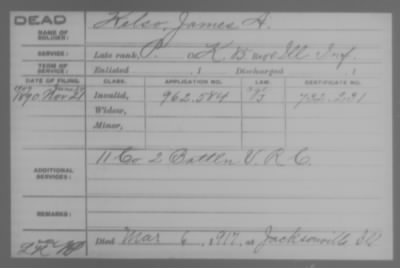 DEAD
NAME OF SOLDIER: Kelso, James H.
SERVICE: Late rank, P. Co. K, Reg't Ill Inf.
TERM OF SERVICE: Enlisted , 1 Discharged , 1
DATE OF FILING. CLASS. APPLICATION NO. LAW. CERTIFICATE NO.
1890 Nov 21 Invalid, 962.584 732.231
Widow,
Minor,
ADDITIONAL SERVICES: 11 Co 2 Battln V.R.C.
REMARKS:
Died Mar 6, 1917, at Jacksonville Ill